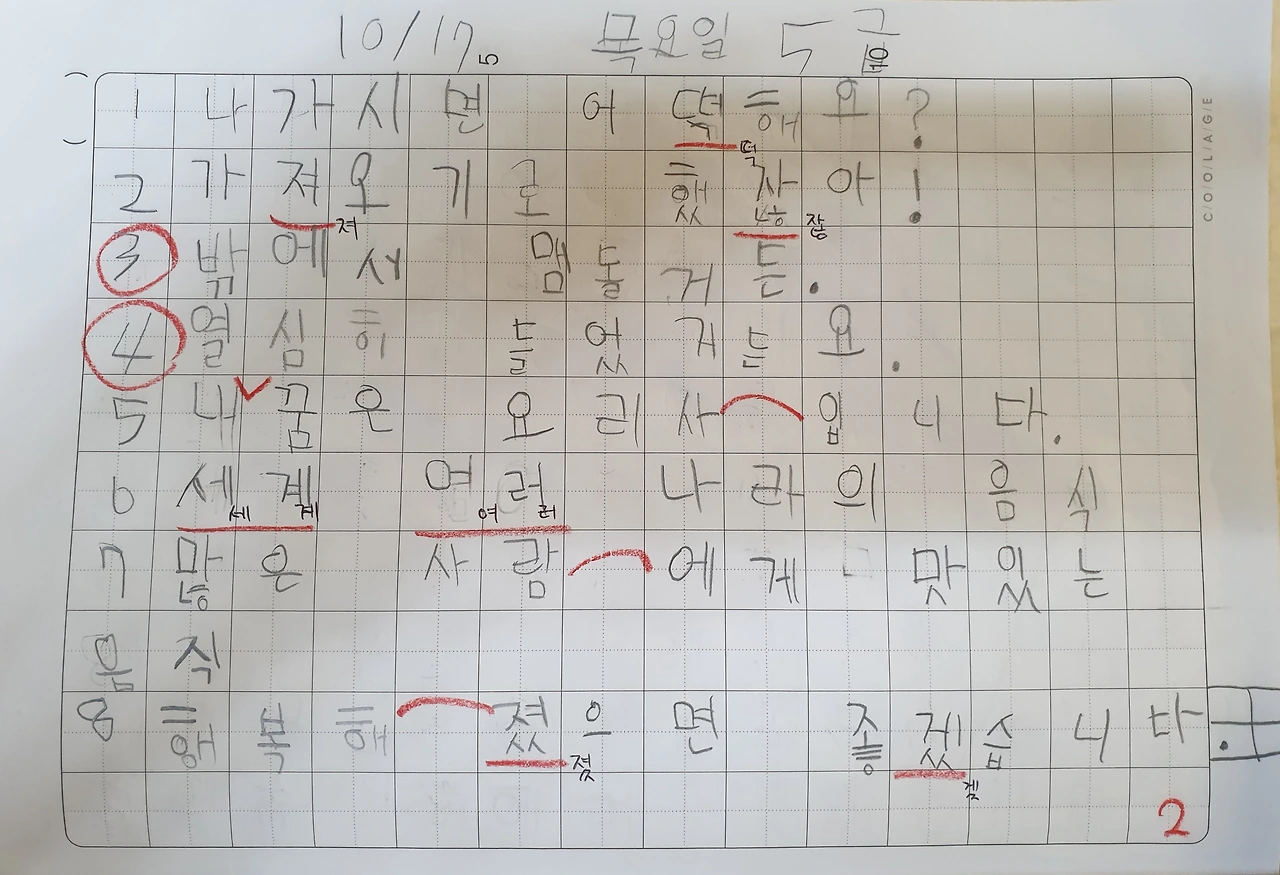 10/17 5 목요일 5급
1 나가시면 어떢해요?
떡
2 가져오기로 했잖아!
져 잖
3 밖에서 맴돌거든.
4 열심히 들었거든요.
5 내꿈은 요리사 입니다.
6 세계 여러 나라의 음식
세 계 여 러
7 많은 사람 에게 맛있는
음직
8 행복해 졌으면 좋겠습니다.
졌 겠
2
COOLAGE